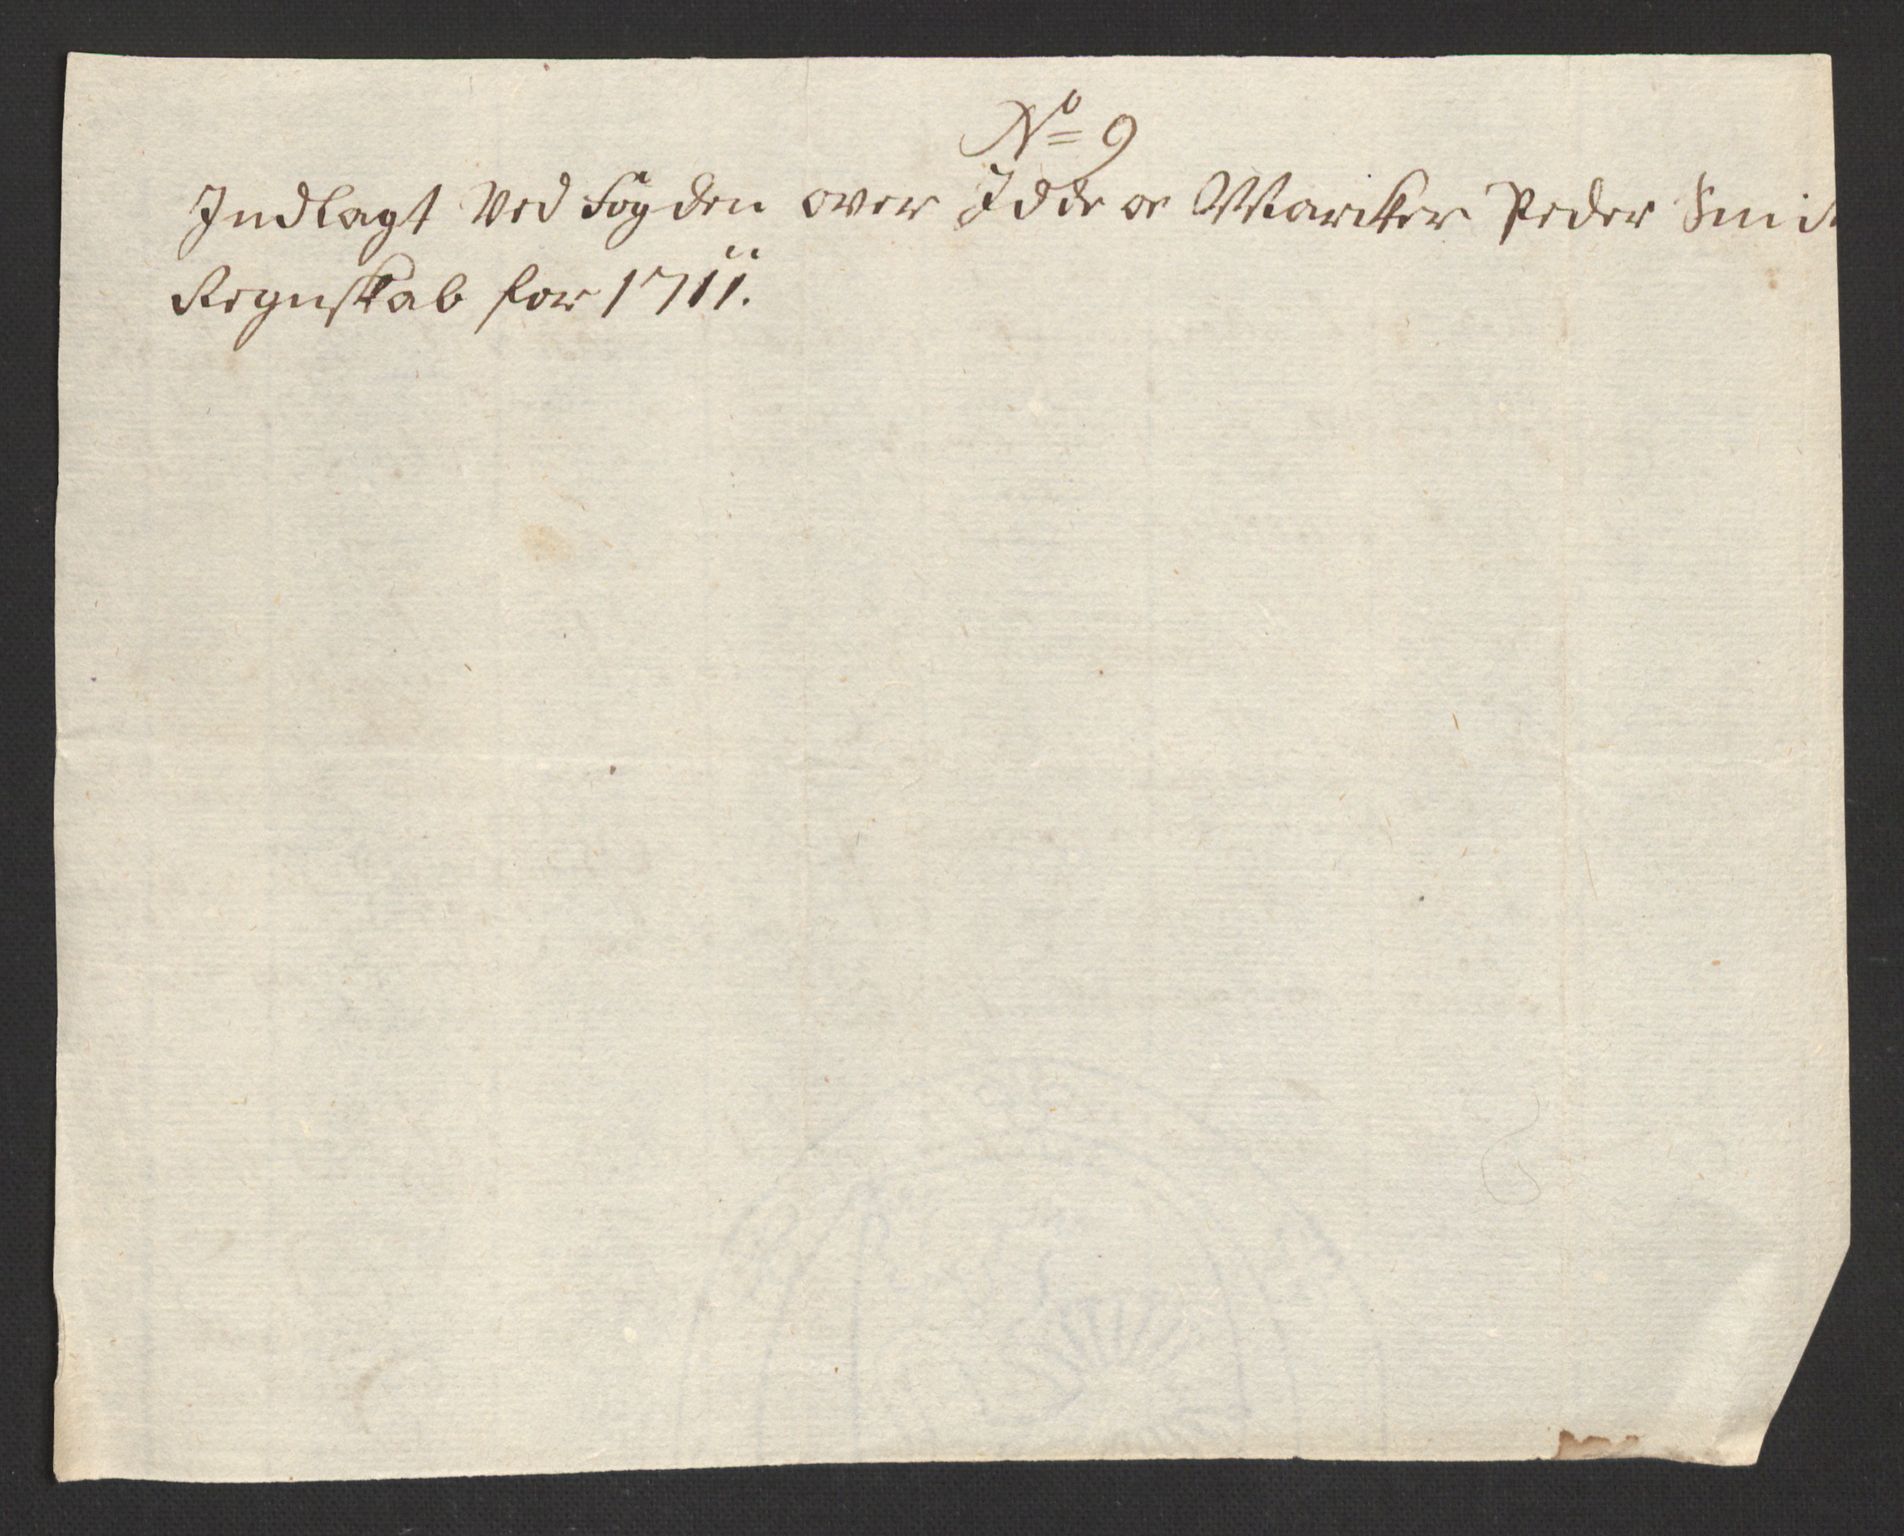 No 9
Indlagt Ved Fogden over Idde oe Marcker Peder Smit
Regnskab for 1711.